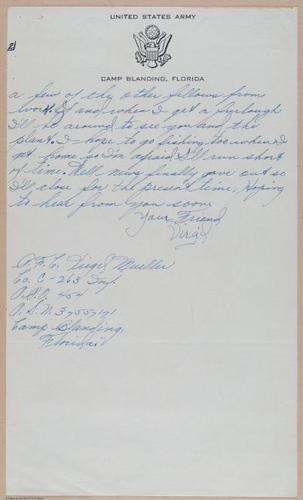 UNITED STATES ARMY
2)
CAMP BLANDING, FLORIDA
a few of the other fellows from
work. If and when I get a furlough
I'll be around to see you and the
plant. I hope to go fishing too when I
get home so I'm afraid I'll run short
of time. Well news finally gave out so
I'll close for the present time, Hoping
to hear from you soon.
Your Friend
Virgil
P.F.C. Virgil Mueller
Co. C-263 Inf.
A.P.O. 454
A.S.N. 37557191
Camp Blanding,
Florida